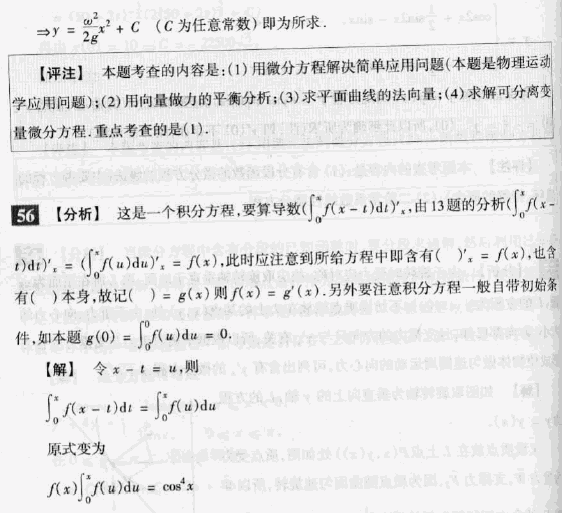 ⇒y = ω²/2g x² + C （C 为任意常数）即为所求.
【评注】 本题考查的内容是:(1)用微分方程解决简单应用问题(本题是物理运动
学应用问题);(2)用向量做力的平衡分析;(3)求平面曲线的法向量;(4)求解可分离变
量微分方程.重点考查的是(1).
56 【分析】 这是一个积分方程,要算导数(∫₀ˣ f(x − t)dt)′ₓ,由13题的分析(∫₀ˣ f(x −
t)dt)′ₓ = (∫₀ˣ f(u)du)′ₓ = f(x),此时应注意到所给方程中即含有( )′ₓ = f(x),也含
有( )本身,故记( ) = g(x)则f(x) = g′(x).另外要注意积分方程一般自带初始条
件,如本题 g(0) = ∫₀⁰ f(u)du = 0.
【解】 令 x − t = u,则
∫₀ˣ f(x − t)dt = ∫₀ˣ f(u)du
原式变为
f(x)∫₀ˣ f(u)du = cos⁴x